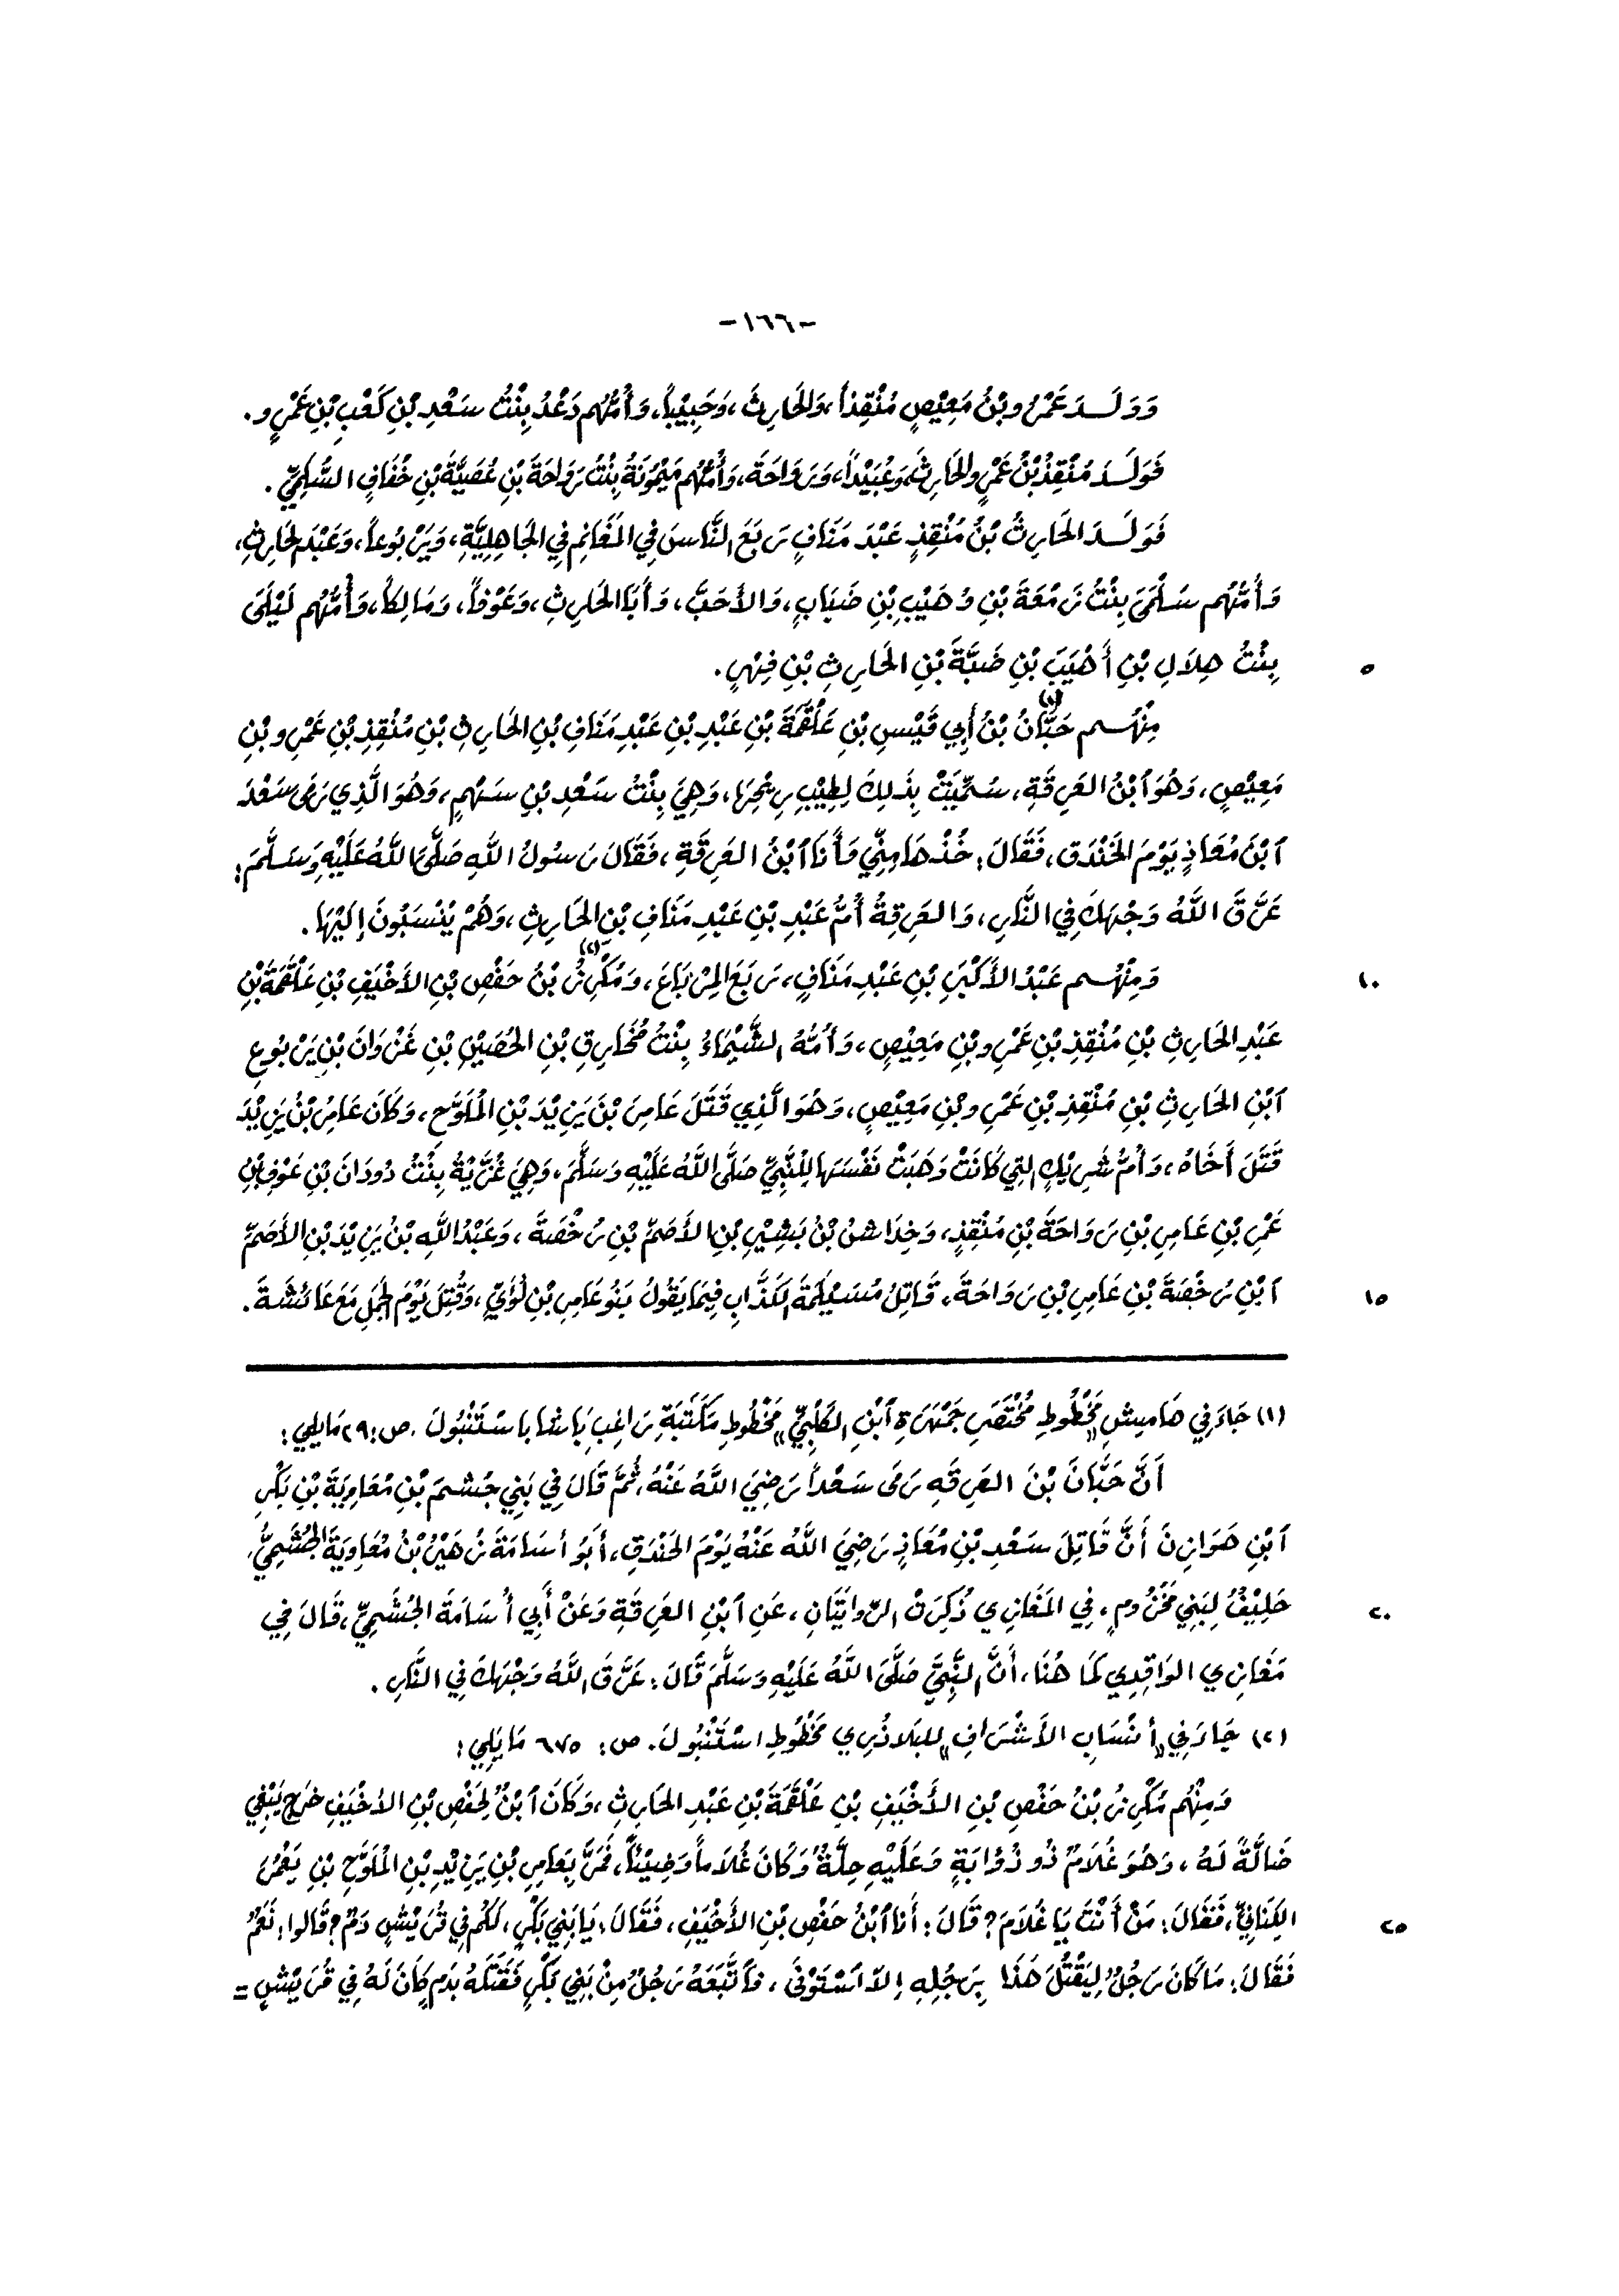 -١٦٦-
وَوَلَدَ عَمْرُو بْنُ مَعِيْصٍ مُنْقِذاً، وَالحَارِثَ، وَحَبِيْباً، وَأُمُّهُم دَعْدُ بِنْتُ سَعْدِ بْنِ كَعْبِ بْنِ عَمْرٍو.
فَوَلَدَ مُنْقِذُ بْنُ عَمْرٍو الحَارِثَ، وَعُبَيْداً، وَرَوَاحَةَ، وَأُمُّهُم مَيْمُونَةُ بِنْتُ رَوَاحَةَ بْنِ عُصَيَّةَ بْنِ خُفَافٍ السُّلَمِيِّ.
فَوَلَدَ الحَارِثُ بْنُ مُنْقِذٍ عَبْدَ مَنَافٍ رَبَعَ النَّاسَ فِي المَغَانِمِ فِي الجَاهِلِيَّةِ، وَيَرْبُوعاً، وَعَبْدَ الحَارِثِ،
وَأُمُّهُم سَلْمَى بِنْتُ زَمْعَةَ بْنِ وُهَيْبِ بْنِ ضَبَابٍ، وَالأَحَبَّ، وَأَبَا الحَارِثِ، وَعَوْفاً، وَمَالِكاً، وَأُمُّهُم لَيْلَى
٥ بِنْتُ هِلَالِ بْنِ أُهَيْبَ بْنِ ضَبَّةَ بْنِ الحَارِثِ بْنِ فِهْرٍ.
مِنْهُم حَبَّانُ (١) بْنُ أَبِي قَيْسِ بْنِ عَلْقَمَةَ بْنِ عَبْدِ بْنِ عَبْدِ مَنَافِ بْنِ الحَارِثِ بْنِ مُنْقِذِ بْنِ عَمْرِو بْنِ
مَعِيْصٍ، وَهُوَ ٱبْنُ العَرِقَةِ، سُمِّيَتْ بِذَلِكَ لِطِيْبِ رِيْحِهَا، وَهِيَ بِنْتُ سَعْدِ بْنِ سَهْمٍ، وَهُوَ الَّذِي رَمَى سَعْدَ
ٱبْنَ مُعَاذٍ يَوْمَ الخَنْدَقِ، فَقَالَ: خُذْهَا مِنِّي وَأَنَا ٱبْنُ العَرِقَةِ، فَقَالَ رَسُولُ اللهِ صَلَّى اللهُ عَلَيْهِ وَسَلَّمَ:
عَرَّقَ اللهُ وَجْهَكَ فِي النَّارِ، وَالعَرِقَةُ أُمُّ عَبْدِ بْنِ عَبْدِ مَنَافِ بْنِ الحَارِثِ، وَهُمْ يُنْسَبُونَ إِلَيْهَا.
١٠ وَمِنْهُم عَبْدُ الأَكْبَرِ بْنِ عَبْدِ مَنَافٍ، رَبَعَ المِرْبَاعَ، وَمُكْرِزُ (٢) بْنُ حَفْصِ بْنِ الأَخْيَفِ بْنِ عَلْقَمَةَ بْنِ
عَبْدِ الحَارِثِ بْنِ مُنْقِذِ بْنِ عَمْرِو بْنِ مَعِيْصٍ، وَأُمُّهُ الشَّيْمَاءُ بِنْتُ مُخَارِقِ بْنِ الحُصَيْنِ بْنِ غَزْوَانَ بْنِ يَرْبُوعِ
ٱبْنِ الحَارِثِ بْنِ مُنْقِذِ بْنِ عَمْرِو بْنِ مَعِيْصٍ، وَهُوَ الَّذِي قَتَلَ عَامِرَ بْنَ يَزِيْدَ بْنِ المُلَوَّحِ، وَكَانَ عَامِرُ بْنُ يَزِيْدَ
قَتَلَ أَخَاهُ، وَأُمُّ شَرِيْكٍ الَّتِي كَانَتْ وَهَبَتْ نَفْسَهَا لِلنَّبِيِّ صَلَّى اللهُ عَلَيْهِ وَسَلَّمَ، وَهِيَ غُزَيَّةُ بِنْتُ دُودَانَ بْنِ عَوْفِ بْنِ
عَمْرِ بْنِ عَامِرِ بْنِ رَوَاحَةَ بْنِ مُنْقِذٍ، وَخِدَاشُ بْنُ بَشِيْرِ بْنِ الأَصَمِّ بْنِ رُخْصَةَ، وَعَبْدُ اللهِ بْنُ يَزِيْدَ بْنِ الأَصَمِّ
١٥ ٱبْنِ رُخْصَةَ بْنِ عَامِرِ بْنِ رَوَاحَةَ، قَاتِلُ مُسَيْلِمَةَ الكَذَّابِ فِيمَا يَقُولُ بَنُو عَامِرِ بْنِ لُؤَيٍّ، وَقُتِلَ يَوْمَ الجَمَلِ مَعَ عَائشَةَ.
(١) جَاءَ فِي هَامِشِ مَخْطُوطِ «مُخْتَصَرِ جَمْهَرَةِ ٱبْنِ الكَلْبِيِّ» مَخْطُوطِ مَكْتَبَةِ رَاغِب بَاشَا بِاسْتَنْبُولَ. ص: ٢٩ مَايلي:
أَنَّ حَبَّانَ بْنَ العَرِقَهِ رَمَى سَعْداً رَضِيَ اللهُ عَنْهُ، ثُمَّ قَالَ فِي بَنِي جُشمَ بْنِ مُعَاوِيَةَ بْنِ بَكْرِ
ٱبْنِ هَوَازِنَ أَنَّ قَاتِلَ سَعْدِ بْنِ مُعَاذٍ رَضِيَ اللهُ عَنْهُ يَوْمَ الخَنْدَقِ، أَبُو أُسَامَةَ زُهَيْرُ بْنُ مُعَاوِيَةَ الجُشَمِيُّ،
٢٠ حَلِيْفُ لِبَنِي مَخْزُومٍ، فِي المَغَازِي ذُكِرَتْ الرِّوايَتَانِ، عَنِ ٱبْنِ العَرِقَةِ وَعَنْ أَبِي أُسَامَةَ الجُشَمِيِّ، قَالَ فِي
مَغَازِي الوَاقِدِي كَمَا هُنَا، أَنَّ النَّبِيَّ صَلَّى اللهُ عَلَيْهِ وَسَلَّمَ قَالَ: عَرَّقَ اللهُ وَجْهَكَ فِي النَّارِ.
(٢) جَاءَ فِي «أَنْسَابِ الأَشْرَافِ» للبَلاذُرِي مَخْطُوطِ اسْتَنْبُولَ. ص: ٦٧٥ مَايَلِي:
وَمِنْهُم مُكْرِزُ بْنُ حَفْصِ بْنِ الأَخْيَفِ بْنِ عَلْقَمَةَ بْنِ عَبْدِ الحَارِثِ، وَكَانَ ٱبْنٌ لِحَفْصِ بْنِ الأَخْيَفِ خَرَجَ يَبْغِي
ضَالَّةً لَهُ، وَهُوَ غُلَامٌ ذُو ذُؤَابَةٍ وَعَلَيْهِ حِلَّةٌ وَكَانَ غُلَاماً وَضِيْئاً، فَمَرَّ بِعَامِرِ بْنِ يَزِيْدِ بْنِ المُلَوَّحِ بْنِ يَعْمُرَ
٢٥ الكِنَانِيِّ، فَقَالَ: مَنْ أَنْتَ يَا غُلَامُ؟ قَالَ: أَنَا ٱبْنُ حَفْصِ بْنِ الأَخْيَفِ، فَقَالَ: يَا بَنِي بَكْرٍ، لَكُمْ فِي قُرَيْشٍ دَمٌ؟ قَالوا: نَعَمْ
فَقَالَ: مَا كَانَ رَجُلٌ لِيَقْتُلَ هَذَا بِرَجُلِهِ إِلّا ٱسْتَوْفَى، فَٱتَّبَعَهُ رَجُلٌ مِنْ بَنِي بَكْرٍ فَقَتَلَهُ بِدَمٍ كَانَ لَهُ فِي قُرَيْشٍ =